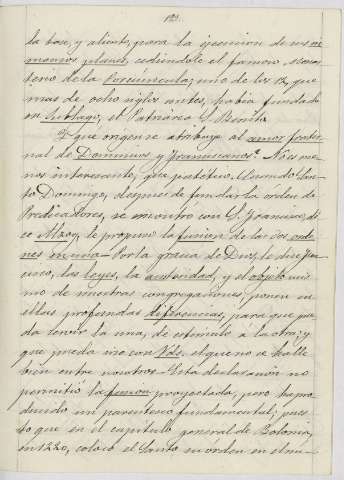 121.
la base, y aliento, para la ejecucion de sus
mismos planes, cediéndole el famoso Monas-
terio de la Porciúncula; uno de los 12, que
mas de ocho siglos antes, habia fundado
en Sublago, el Patriarca S. Benito.
Y que origen se atribuye al amor frater-
nal de Dominicos y Franciscanos? No es me-
nos interesante, que patético. Cuando San-
to Domingo, despues de fundar la órden de
Predicadores, se encontró con S. Francisco, di-
ce Alzog, le propuso la fusion de las dos orde-
nes en una - Por la gracia de Dios, le dice Fran-
cisco, las leyes, la austeridad, y el objeto mis-
mo de nuestras congregaciones, ponen en
ellas profundas diferencias, para que pue-
da servir la una, de estímulo á la otra; y
que pueda irse con Vds, el que no se halle
bien entre nosotros - Esta declaracion no
permitió la fusion proyectada, pero ha pro-
ducido un parentesco fundamental; pues-
to que en el capítulo general de Bolonia,
en 1220, colocó el Santo su órden en el nú-